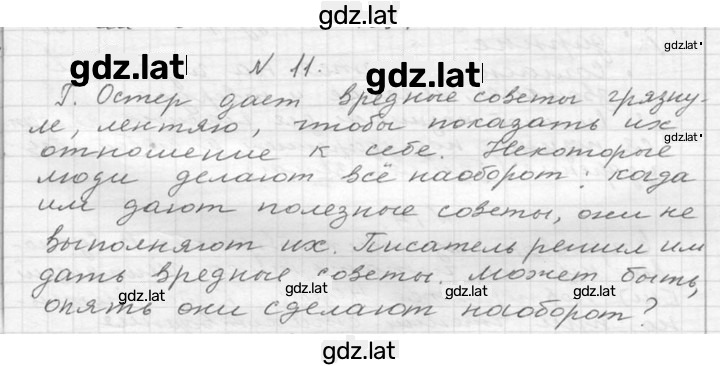 gdz.lat
gdz.lat
gdz.lat N 11. gdz.lat
Г. Остер дает вредные советы грязну-
ле, лентяю, чтобы показать их
gdz.lat
отношение к себе. Некоторые
люди делают всё наоборот: когда
им дают полезные советы, они не
выполняют их. Писатель решил им
дать вредные советы. Может быть,
gdz.lat gdz.lat gdz.lat gdz.lat
опять они сделают наоборот?
gdz.lat